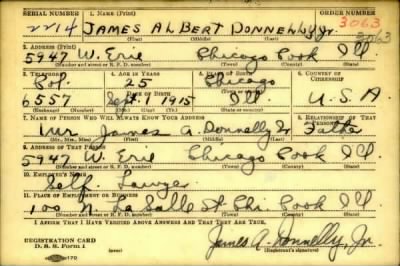 SERIAL NUMBER 1. NAME (Print) ORDER NUMBER
2214 JAMES ALBERT DONNELLY Jr. 3063
(First) (Middle) (Last)
2. ADDRESS (Print) 3063
5947 W. Erie Chicago Cook Ill
(Number and street or R. F. D. number) (Town) (County) (State)
3. TELEPHONE 4. AGE IN YEARS 5. PLACE OF BIRTH 6. COUNTRY OF CITIZENSHIP
Col. 25 Chicago
DATE OF BIRTH
6557 Sept. 1915 Ill. U.S.A
7. NAME OF PERSON WHO WILL ALWAYS KNOW YOUR ADDRESS 8. RELATIONSHIP OF THAT PERSON
Mr James A. Donnelly Sr Father
(Mr., Mrs., Miss) (First) (Middle) (Last)
9. ADDRESS OF THAT PERSON
5947 W. Erie Chicago Cook Ill
(Number and street or R. F. D. number) (Town) (County) (State)
10. EMPLOYER'S NAME
Self. Lawyer
11. PLACE OF EMPLOYMENT OR BUSINESS
100 N. La Salle St Chi. Cook Ill
(Number and street or R. F. D. number) (Town) (County) (State)
I AFFIRM THAT I HAVE VERIFIED ABOVE ANSWERS AND THAT THEY ARE TRUE.
REGISTRATION CARD
D. S. S. Form 1 James A. Donnelly, Jr.
(Registrant's signature)